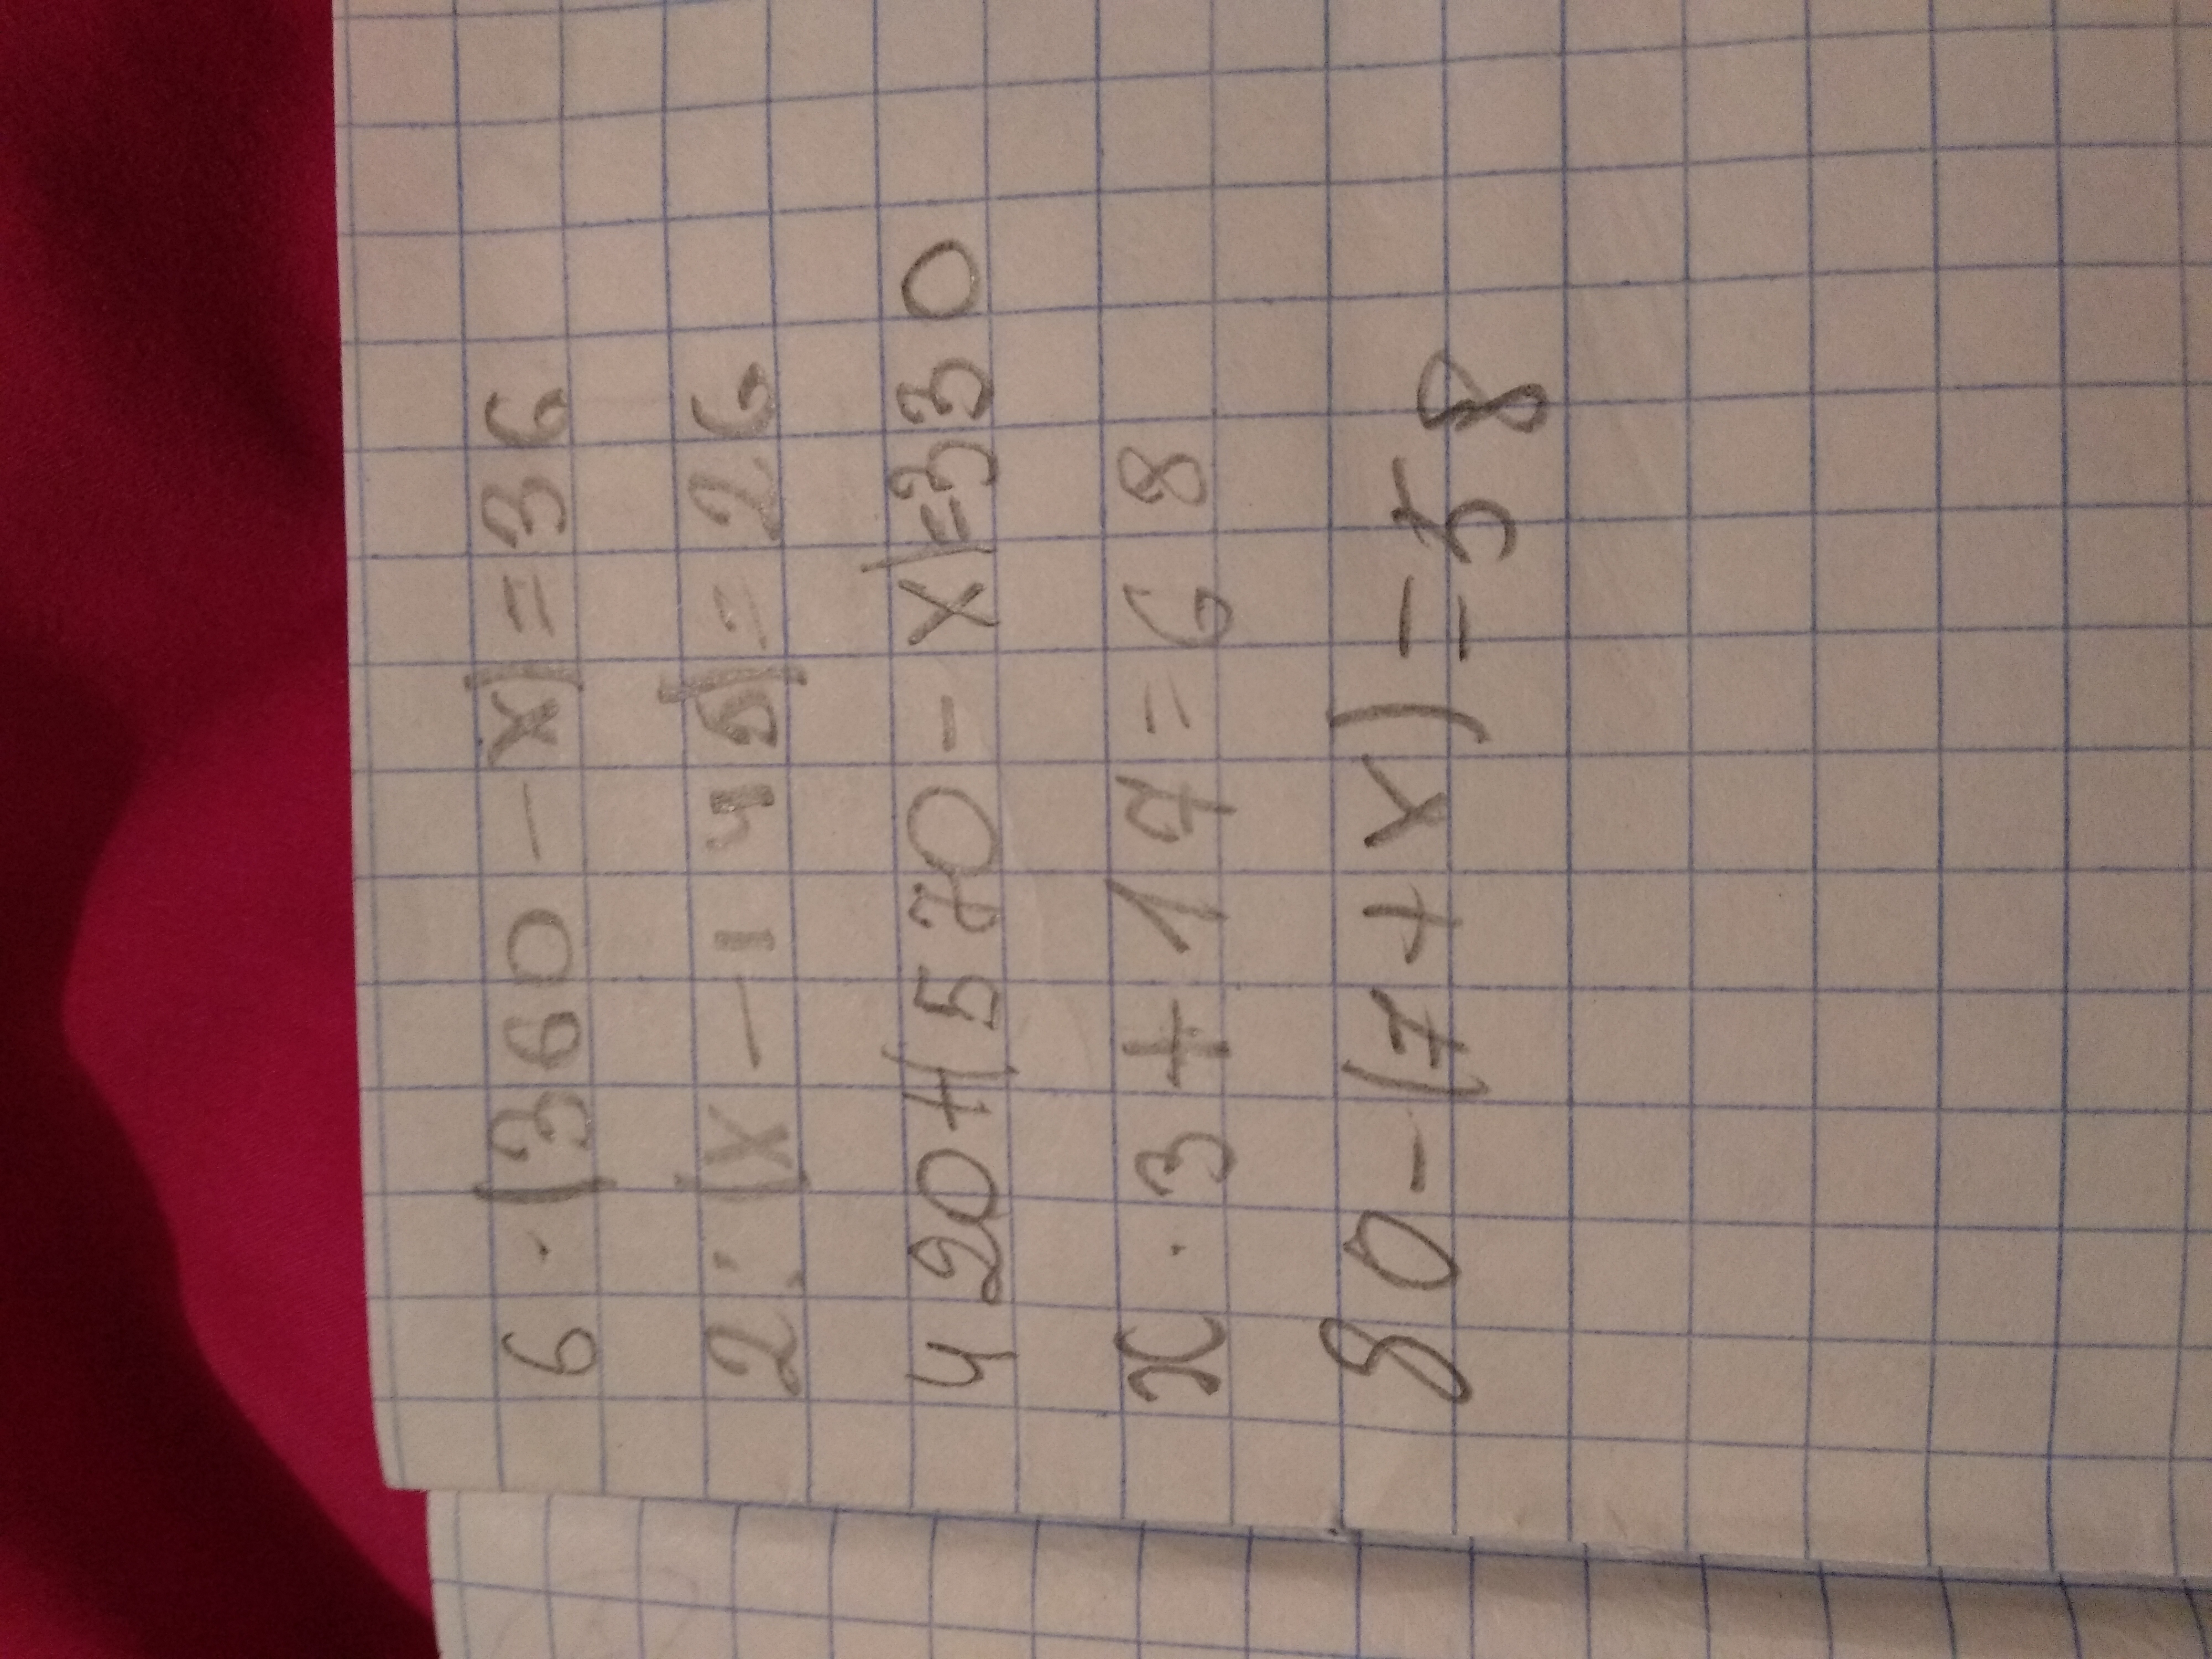 6 · (360 - x) = 36
2 : (x - 145) = 26
420 + (570 - x) = 330
x · 3 + 17 = 68
80 - (7 + x) = 58